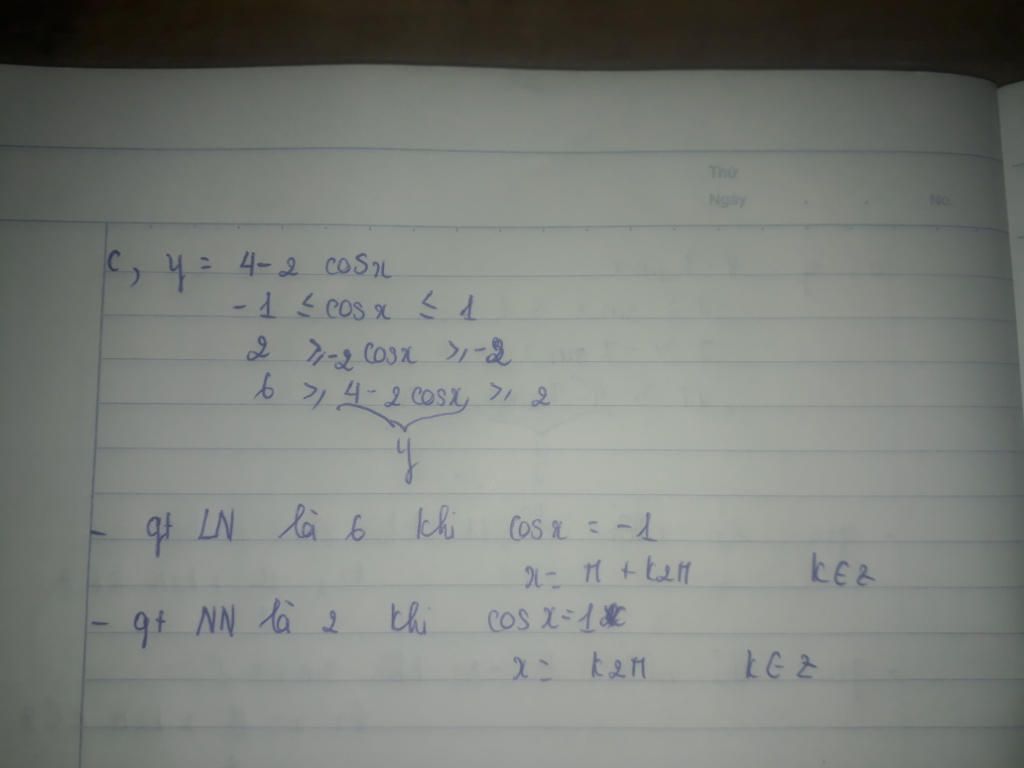 Thứ
Ngày . . No.
c, y = 4 - 2 cosx
-1 ≤ cosx ≤ 1
2 ≥ -2cosx ≥ -2
6 ≥ 4 - 2cosx ≥ 2
y
- gt LN là 6 khi cosx = -1
x = π + k2π k∈Z
- gt NN là 2 khi cosx = 1
x = k2π k∈Z